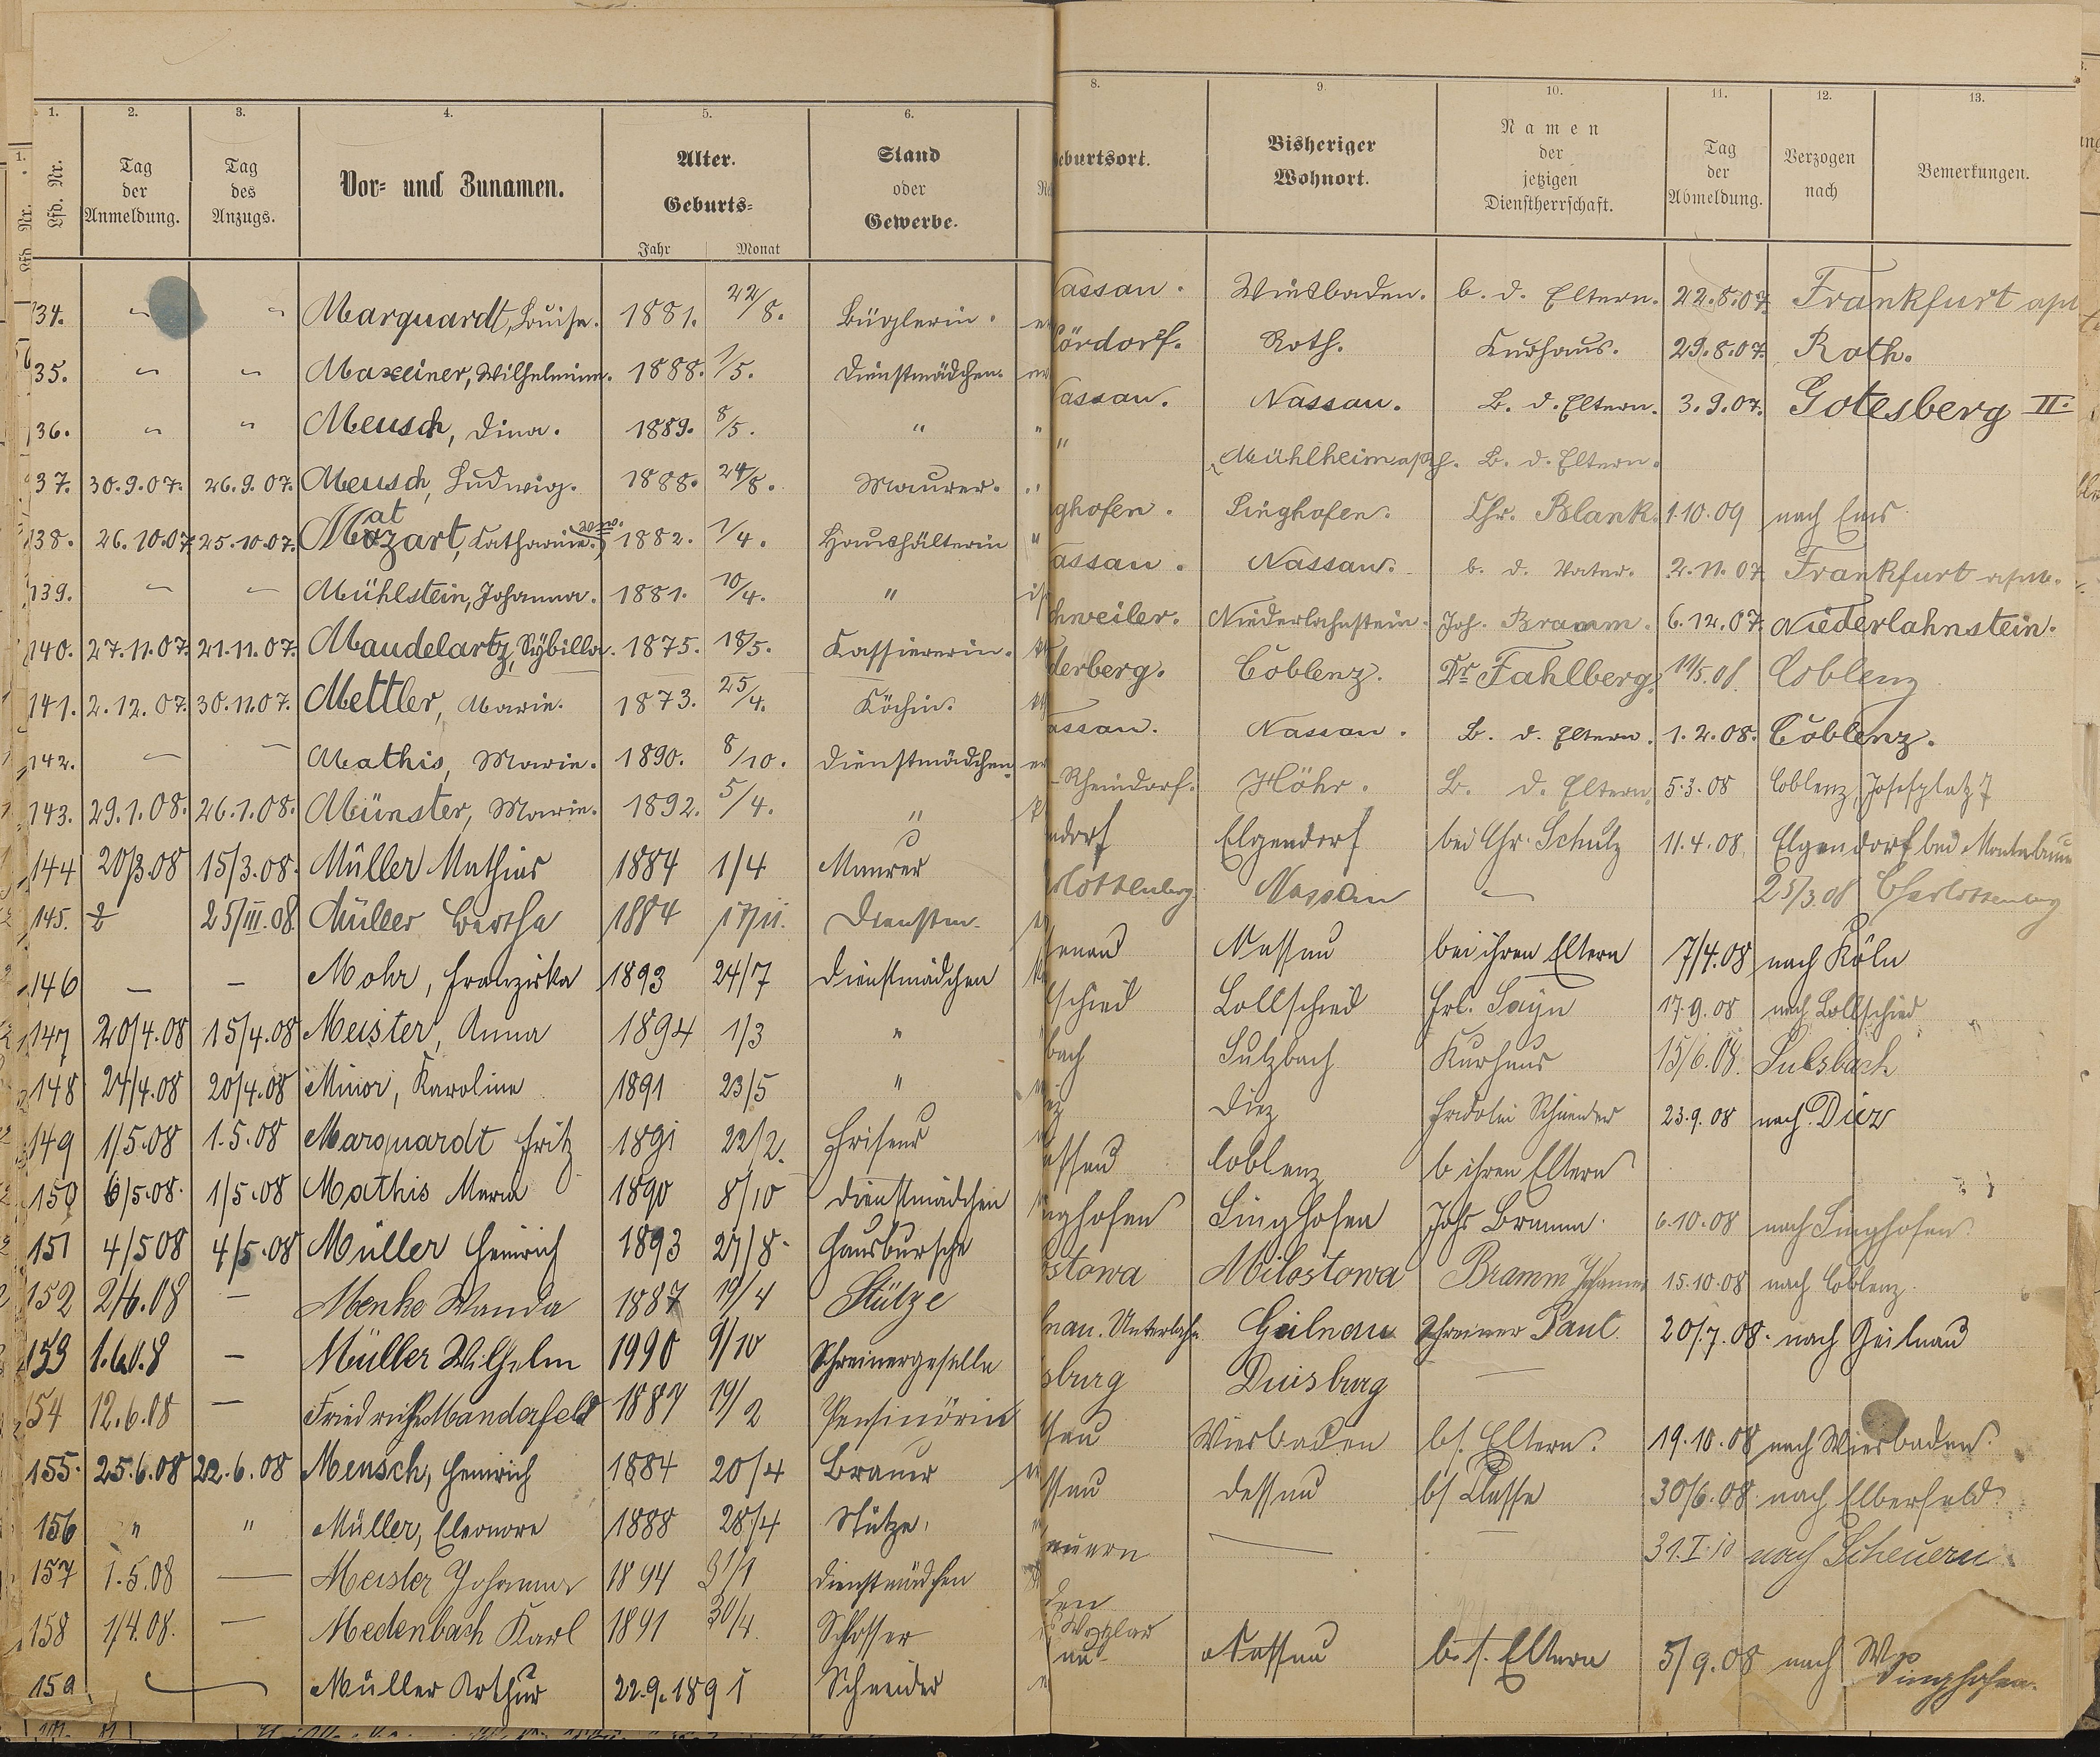 1. 2. 3. 4. 5. 6.
Lfd. Nr. Tag der Anmeldung. Tag des Anzugs. Vor- und Zunamen. Alter. Geburts- Jahr Monat Stand oder Gewerbe.
8. 9. 10. 11. 12. 13.
eburtsort. Bisheriger Wohnort. Namen der jetzigen Dienstherrschaft. Tag der Abmeldung. Verzogen nach Bemerkungen.
134. " " Marquardt, Luise. 1881. 22/8. Büglerin.
135. " " Maxeiner, Wilhelmine. 1888. 1/5. Dienstmädchen.
136. " " Meusch, Dina. 1889. 8/5. "
137. 30.9.07. 26.9.07. Meusch, Ludwig. 1888. 24/8. Maurer.
138. 26.10.07 25.10.07. Matzart, Katharine. 1882. 1/4. Haushälterin
139. — — Mühlstein, Johanna. 1881. 10/4. "
140. 27.11.07. 21.11.07. Maudelartz, Sybilla. 1875. 18/5. Kassiererin.
141. 2.12.07. 30.11.07. Mettler, Marie. 1873. 25/4. Köchin.
142. — — Mathis, Marie. 1890. 8/10. Dienstmädchen.
143. 29.1.08. 26.1.08. Münster, Marie. 1892. 5/4. "
144 20/3.08 15/3.08. Müller Mathias 1884 1/4 Maurer
145. 25/III.08. Müller Bertha 1884 17/11. Dienstm.
146 — — Mohr, Franziska 1893 24/7 Dienstmädchen
147 20/4.08 15/4.08 Meister, Anna 1894 1/3 "
148 24/4.08 20/4.08 Minor, Karoline 1891 23/5 "
149 1/5.08 1.5.08 Marquardt Fritz 1891 22/2. Friseur
150 6/5.08. 1/5.08 Mathis Maria 1890 8/10 Dienstmädchen
151 4/5 08 4/5.08 Müller Heinrich 1893 27/8. Hausbursche
152 2/6.08 — Menke Wanda 1887 19/4 Stütze
153 1.6.08 — Müller Wilhelm 1990 9/10 Schreinergeselle
154 12.6.08 — Friedrich Manderfeld 1887 19/2
155. 25.6.08 22.6.08 Meusch, Heinrich 1884 20/4 Brauer
156 " " Müller, Eleonore 1888 28/4 Stütze.
157 1.5.08 — Meister Johanna 1894 31/1 Dienstmädchen
158 1/4.08. — Medenbach Karl 1891 30/4. Schlosser
159 Müller Arthur 22.9.1891 Schneider
assau. Wiesbaden. b. d. Eltern. 22.8.07. Frankfurt a/M
ördorf. Roth. Kurhaus. 29.8.07. Roth.
assau. Nassau. B. d. Eltern. 3.9.07. Gotesberg II.
" Mühlheim a/Rh. B. d. Eltern.
ghofen. Singhofen. Chr. Blank. 1.10.09 nach Ems
assau. Nassau. b. d. Vater. 2.11.07 Frankfurt a/M.
chweiler. Niederlahnstein. Joh. Bramm. 6.12.07. Niederlahnstein.
derberg. Coblenz. Dr Fahlberg. 11/5.08. Coblenz
assau. Nassau. B. d. Eltern. 1.2.08. Coblenz.
-Rheindorf. Höhr. B. d. Eltern. 5.3.08 Coblenz, Josefplatz 7
ndorf Elgendorf bei Chr. Schulz 11.4.08. Elgendorf bei Montabaur
rlottenberg. Nassau — 25/3.08 Charlottenberg
Nassau bei ihren Eltern 7/4.08 nach Köln
lschied Lollschied Frl. Sayn 17.9.08 nach Lollschied
bach Sulzbach Kurhaus 15/6.08. Sulzbach
Diez Fridolin 23.9.08 nach Diez
assau Coblenz b ihren Eltern
nghofen Singhofen Johs Bramm. 6.10.08 nach Singhofen
ostowa Milostowa Bramm Johannes 15.10.08 nach Coblenz
lnau. Unterlahn Geilnau Schreiner Paul 20/7.08. nach Geilnau
sburg Duisburg —
ssau Wiesbaden bs. Eltern. 19.10.08 nach Wiesbaden.
ssau Dessau 30/6.08 nach Elberfeld.
euern — 31.I.10 nach Scheuern
den
Wetzlar
au Nassau b. s. Eltern 5/9.08 nach
Singhofen.